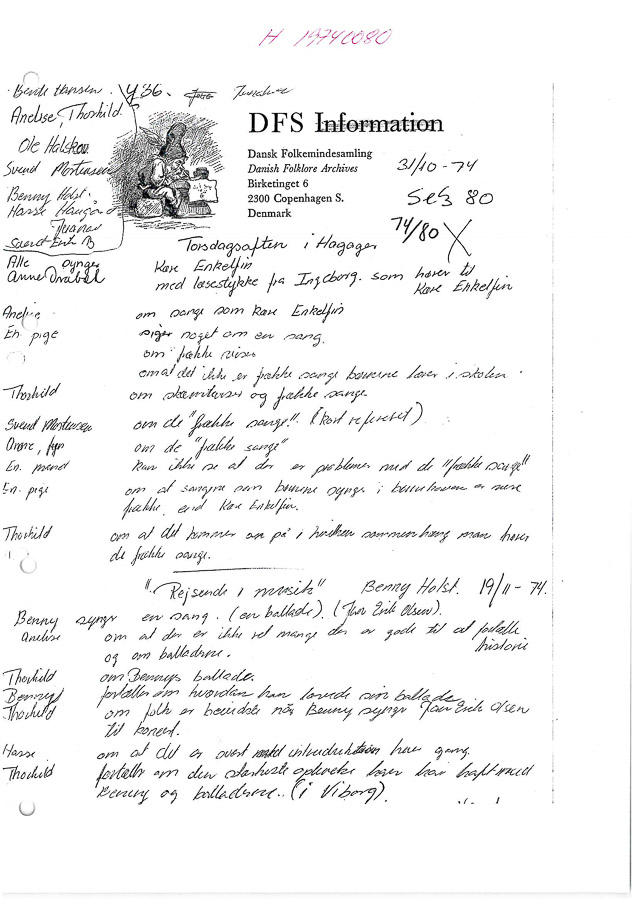 H 1974/0080
Bende Hansen. Y 36.
Anelise, Thorkild.
Ole Halskov
Svend Mortensen
Benny Holst.
Hasse
Alle synger
Anne Drabæk
DFS Information
Dansk Folkemindesamling
Danish Folklore Archives
Birketinget 6
2300 Copenhagen S.
Denmark
31/10 - 74
Seg 80
74/80 X
Torsdagsaften i Hagager
Kære Enkelfin
med læsestykke fra Ingeborg. som hører til
Kære Enkelfin
Anelise om sange som Kære Enkelfin
En pige siger noget om en sang.
om frække viser
om at det ikke er frække sange børnene lærer i skolen.
Thorkild om skæmteviser og frække sange
Svend Mortensen om de "frække sange". (kort refereret)
om de "frække sange"
En mand kan ikke se at der er problemer med de "frække sange"
En pige om at sangene som børnene synger i børnehaven er mere
frække end Kære Enkelfin.
Thorkild om at det kommer an på i hvilken sammenhæng man hører
de frække sange.
"Rejsende i musik" Benny Holst. 19/11 - 74.
Benny synger en sang. (en ballade). (Jens Erik Olsen).
Anelise om at der er ikke ret mange der er gode til at fortælle
historie
og om balladerne.
Thorkild om Bennys ballade.
Benny fortæller om hvordan han lavede sin ballade
Thorkild om folk er når Benny synger Jens Erik Olsen
til koncert.
Hasse om at det er svært med introduktion hver gang.
Thorkild fortæller om den stærkeste oplevelse han har haft med
Benny og balladerne.. (i Viborg).